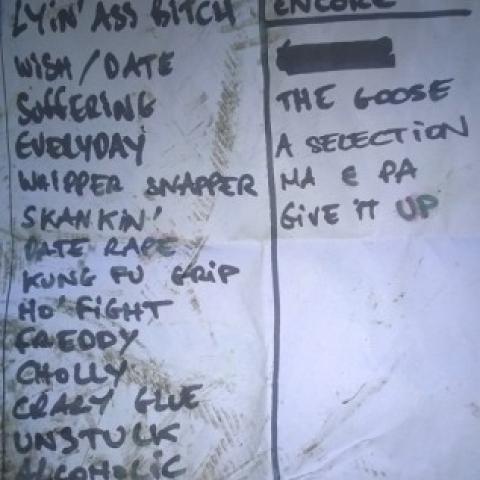 LYIN' ASS BITCH
WISH / DATE
SUFFERING
EVERYDAY
WHIPPER SNAPPER
SKANKIN'
DATE RAPE
KUNG FU GRIP
HO' FIGHT
FREDDY
CHOLLY
CRAZY GLUE
UNSTUCK
ALCOHOLIC
ENCORE
THE GOOSE
A SELECTION
MA & PA
GIVE IT UP